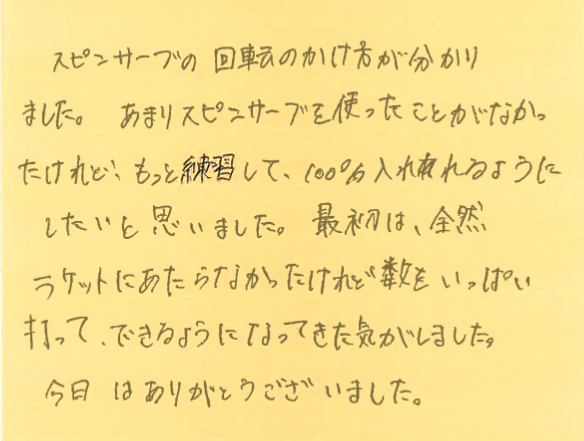 スピンサーブの回転のかけ方が分かり
ました。あまりスピンサーブを使ったことがなかっ
たけれど、もっと練習して、100%入れれるように
したいと思いました。最初は、全然
ラケットにあたらなかったけれど数をいっぱい
打って、できるようになってきた気がしました。
今日はありがとうございました。